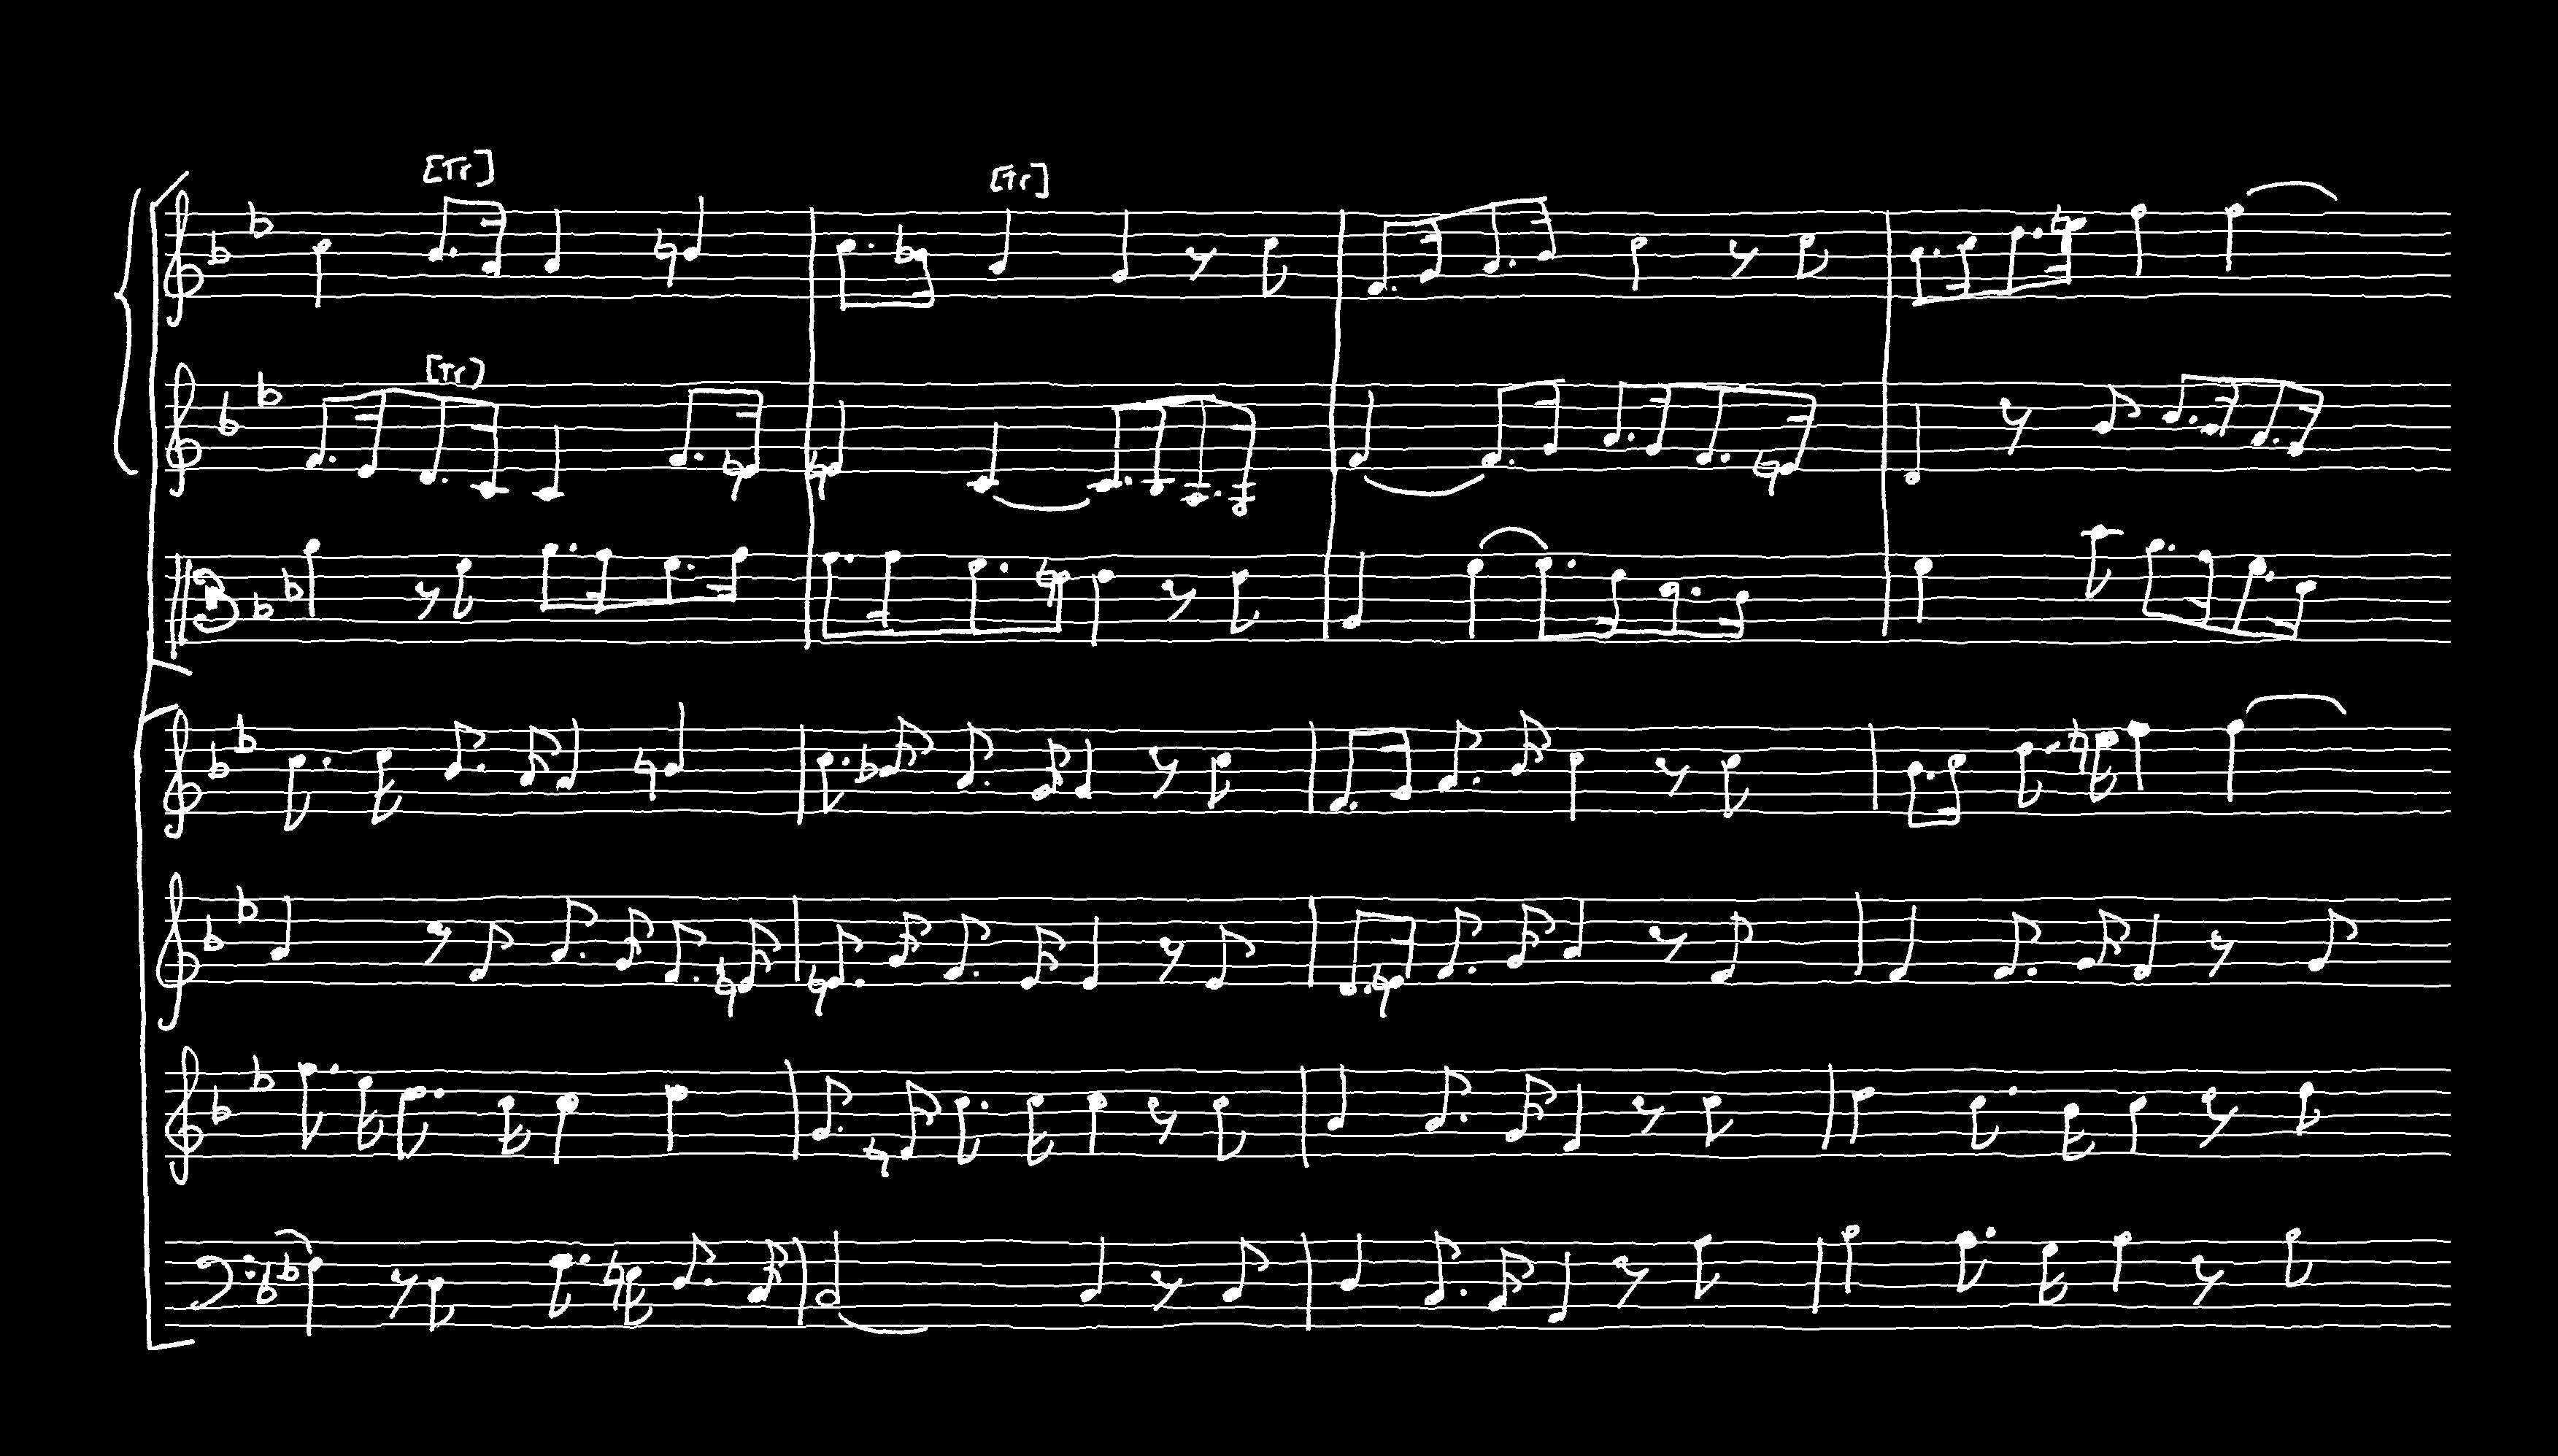 [Tr]
[Tr]
[Tr)